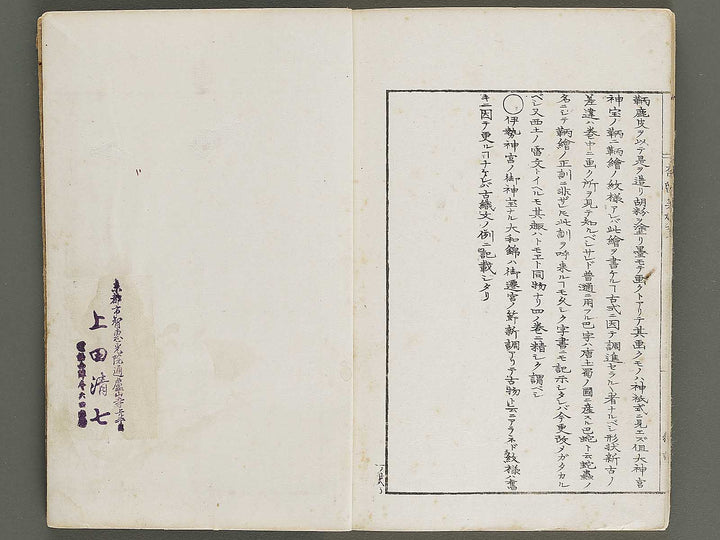 鞆鹿皮ヲ以テ是ヲ造リ胡粉ヲ塗リ墨モテ画クトアリテ其画クモノハ神祇式ニ見エズ但大神宮
神宝ノ鞆ニ鞆繪ノ紋様アレバ此繪ヲ書ケルヿ古式ニ因テ調進セラルヽ者ナルベシ形状新古ノ
差違ハ巻中ニ画ク所ヲ見テ知ルベシサレド普通ニ用フル巴字ハ唐土蜀ノ國ニ産スル巴蛇ト云蛇蟲ノ
名ニシテ鞆繪ノ正訓ニ非ザレ𪜈此訓ヲ呼来ルヿモ久シク字書ニモ記シタレバ今更改メガタクカル
ベシ又西土ノ雷文トイヘルモ其趣ハトモエト同物ナリ四ノ巻ニ精シク謂ベシ
○伊勢神宮ノ御神宝ナル大和錦ハ御遷宮ノ節新調アリテ古物ト云ニアラネド紋様ハ舊
キニ因テ更ルヿナケレバ古織文ノ例ニ記載シタリ
京都市智恵光院通廬山寺
上田清七